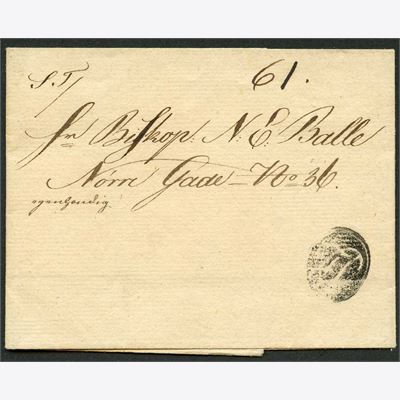 61.
S. T/
Hr Biskop: N. E. Balle
Nörre Gade – No 36.
egenhændig